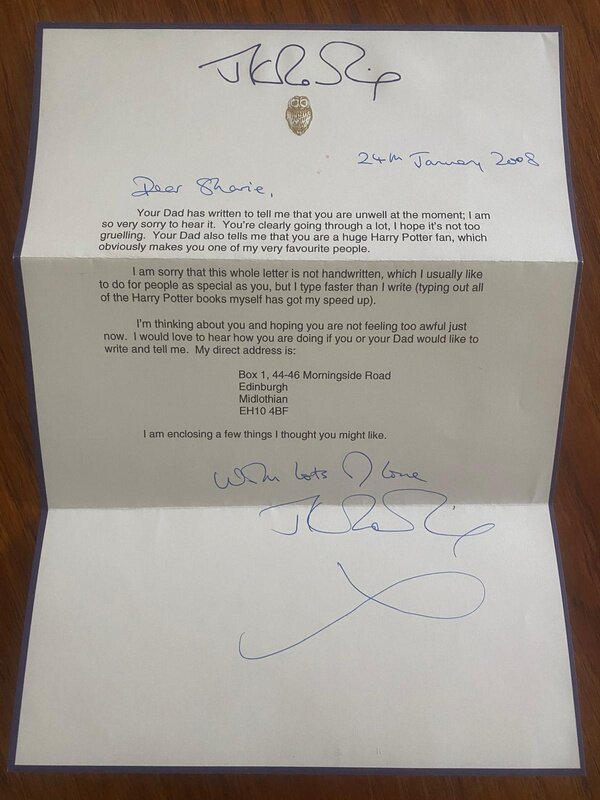 JK Rowling
24th January 2008
Dear Sharie,
Your Dad has written to tell me that you are unwell at the moment; I am
so very sorry to hear it. You're clearly going through a lot, I hope it's not too
gruelling. Your Dad also tells me that you are a huge Harry Potter fan, which
obviously makes you one of my very favourite people.
I am sorry that this whole letter is not handwritten, which I usually like
to do for people as special as you, but I type faster than I write (typing out all
of the Harry Potter books myself has got my speed up).
I'm thinking about you and hoping you are not feeling too awful just
now. I would love to hear how you are doing if you or your Dad would like to
write and tell me. My direct address is:
Box 1, 44-46 Morningside Road
Edinburgh
Midlothian
EH10 4BF
I am enclosing a few things I thought you might like.
With lots of love
JK Rowling
x